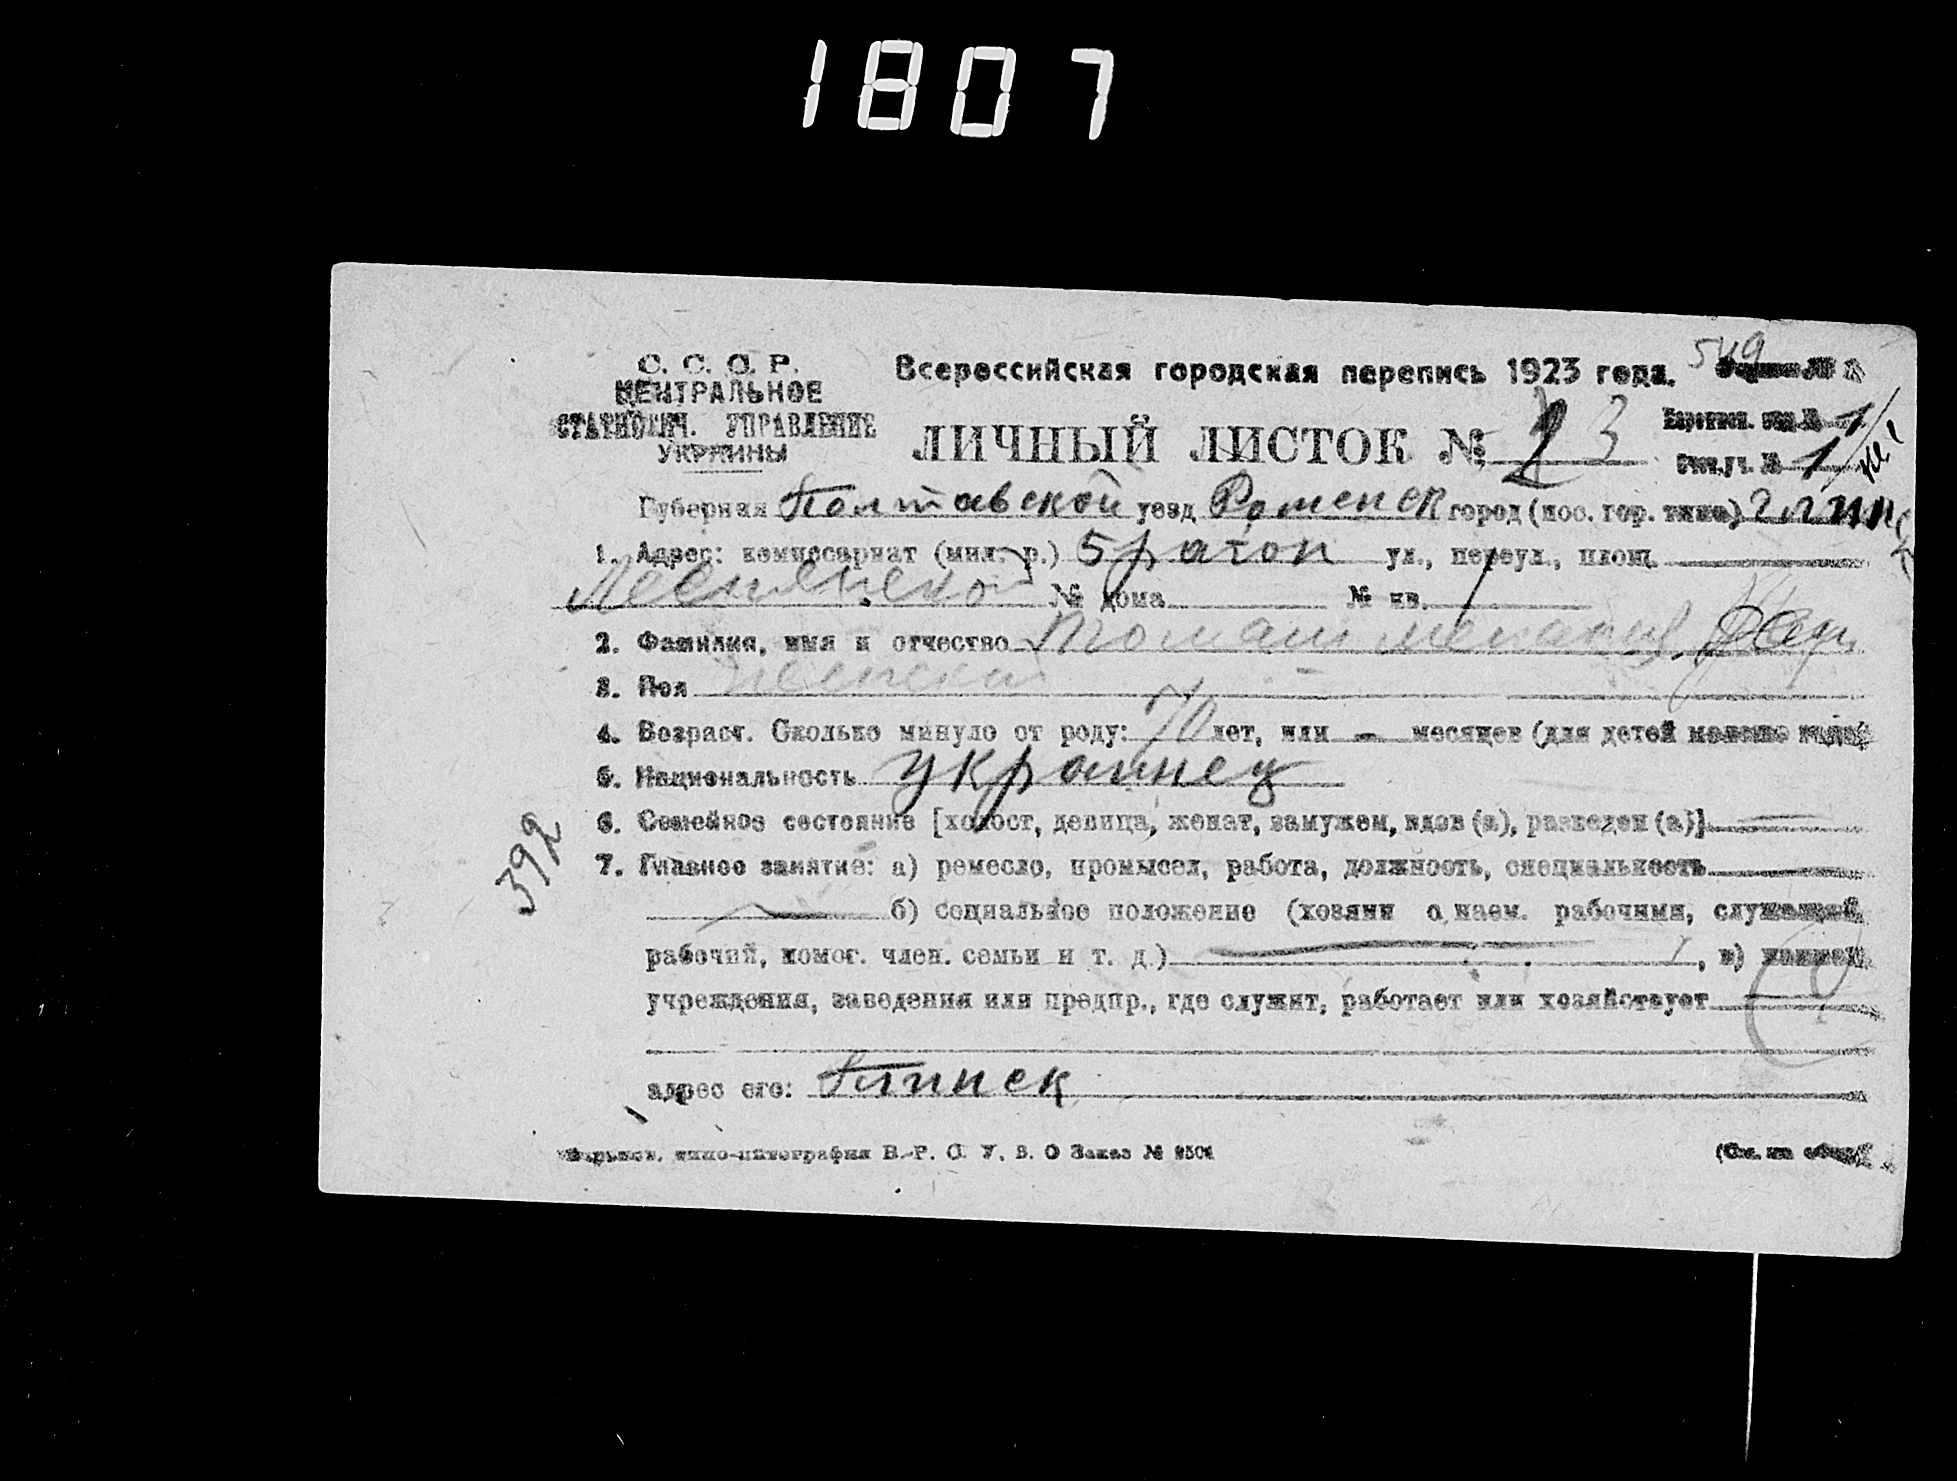 1807
С. С. С. Р.
ЦЕНТРАЛЬНОЕ
СТАТИСТИЧ. УПРАВЛЕНИЕ
УКРАИНЫ
Всероссийская городская перепись 1923 года. 549
ЛИЧНЫЙ ЛИСТОК № 23
Губерния Полтавской уезд Роменск город (пос. гор. типа) Глинск
1. Адрес: комиссариат (мил. р.) 5 ратоп ул., переул., площ.
№ дома № кв.
2. Фамилия, имя и отчество
3. Пол женский
4. Возраст. Сколько минуло от роду: 70 лет, или — месяцев (для детей
5. Национальность украинец
6. Семейное состояние [холост, девица, женат, замужем, вдов (а), разведен (а)]
7. Главное занятие: а) ремесло, промысел, работа, должность, специальность
б) социальное положение (хозяин с наем. рабочими, служащий,
рабочий, помог. член. семьи и т. д.) , в)
учреждения, заведения или предпр., где служит, работает или хозяйствует
адрес его: Глинск
392